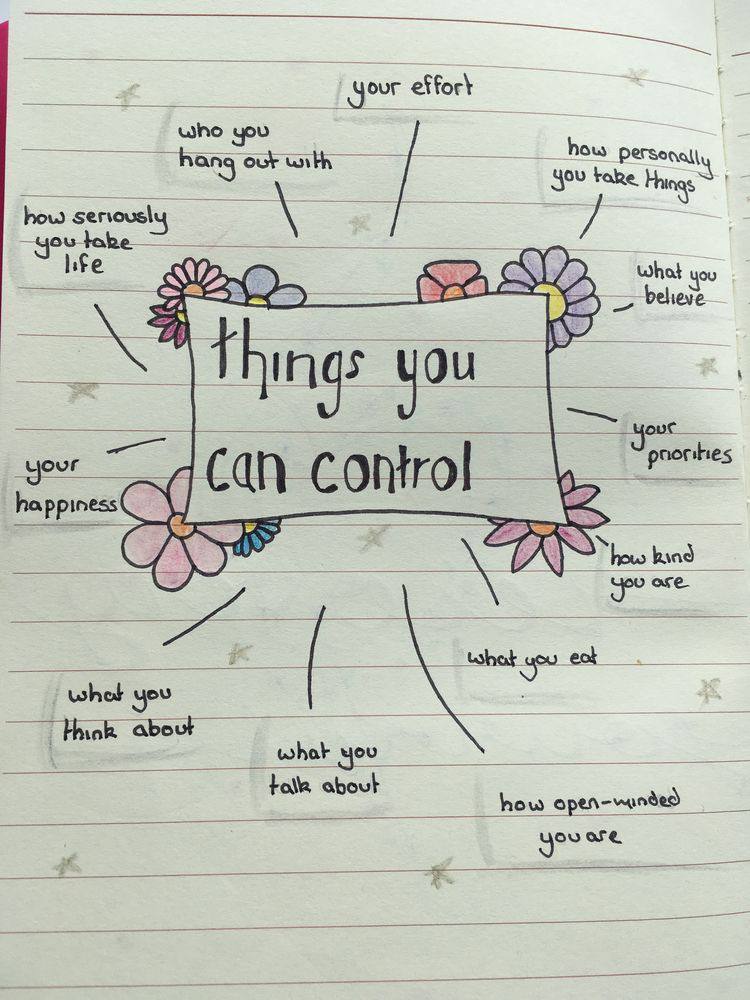 your effort
who you
hang out with
how personally
you take things
how seriously
you take
life
what you
believe
things you
can control
your
priorities
your
happiness
how kind
you are
what you eat
what you
think about
what you
talk about
how open-minded
you are